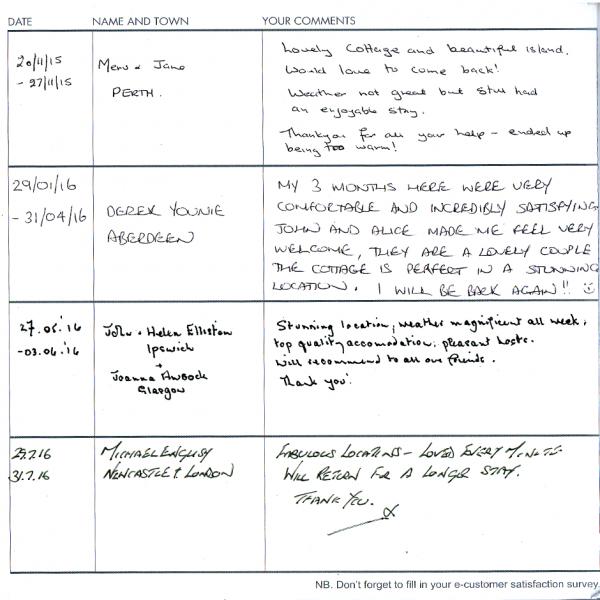 DATE NAME AND TOWN YOUR COMMENTS
20/11/15
- 27/11/15
Jane
PERTH.
Lovely Cottage and beautiful island.
Would love to come back!
Weather not great but still had
an enjoyable stay.
Thankyou for all your help - ended up
being too warm!
29/01/16
- 31/04/16
DEREK YOUNIE
ABERDEEN
MY 3 MONTHS HERE WERE VERY
COMFORTABLE AND INCREDIBLY SATISFYING
JOHN AND ALICE MADE ME FEEL VERY
WELCOME, THEY ARE A LOVELY COUPLE
THE COTTAGE IS PERFECT IN A STUNNING
LOCATION. I WILL BE BACK AGAIN!!
27.05.'16
-03.06.'16
John + Helen Elliston
Ipswich
+
Joanna
Glasgow
Stunning location, weather magnificent all week,
top quality accomodation, pleasant hosts.
Will recommend to all our friends.
Thank you!
29.7.16
31.7.16
MICHAEL ENGLISH
NEWCASTLE & LONDON
FABULOUS LOCATION - LOVED EVERY MINUTE.
WILL RETURN FOR A LONGER STAY.
THANK YOU.
NB. Don't forget to fill in your e-customer satisfaction survey.